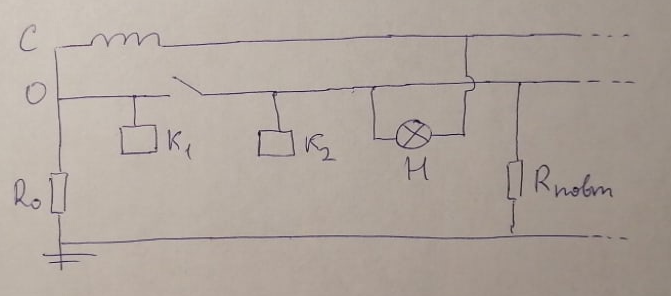 C
O
K₁
K₂
H
R₀
Rповт